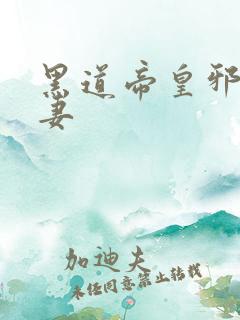 黑道帝皇邪
妻
加迪夫
未经同意禁止转载